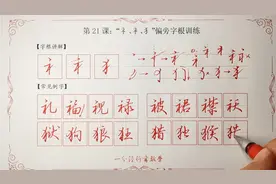 第21课：“礻、衤、犭”偏旁字根训练
【字根讲解】
礻 衤 犭
【常见例字】
礼 福 祝 禄 被 裙 襟 袄
狱 狗 狼 狂 猎 独 猴